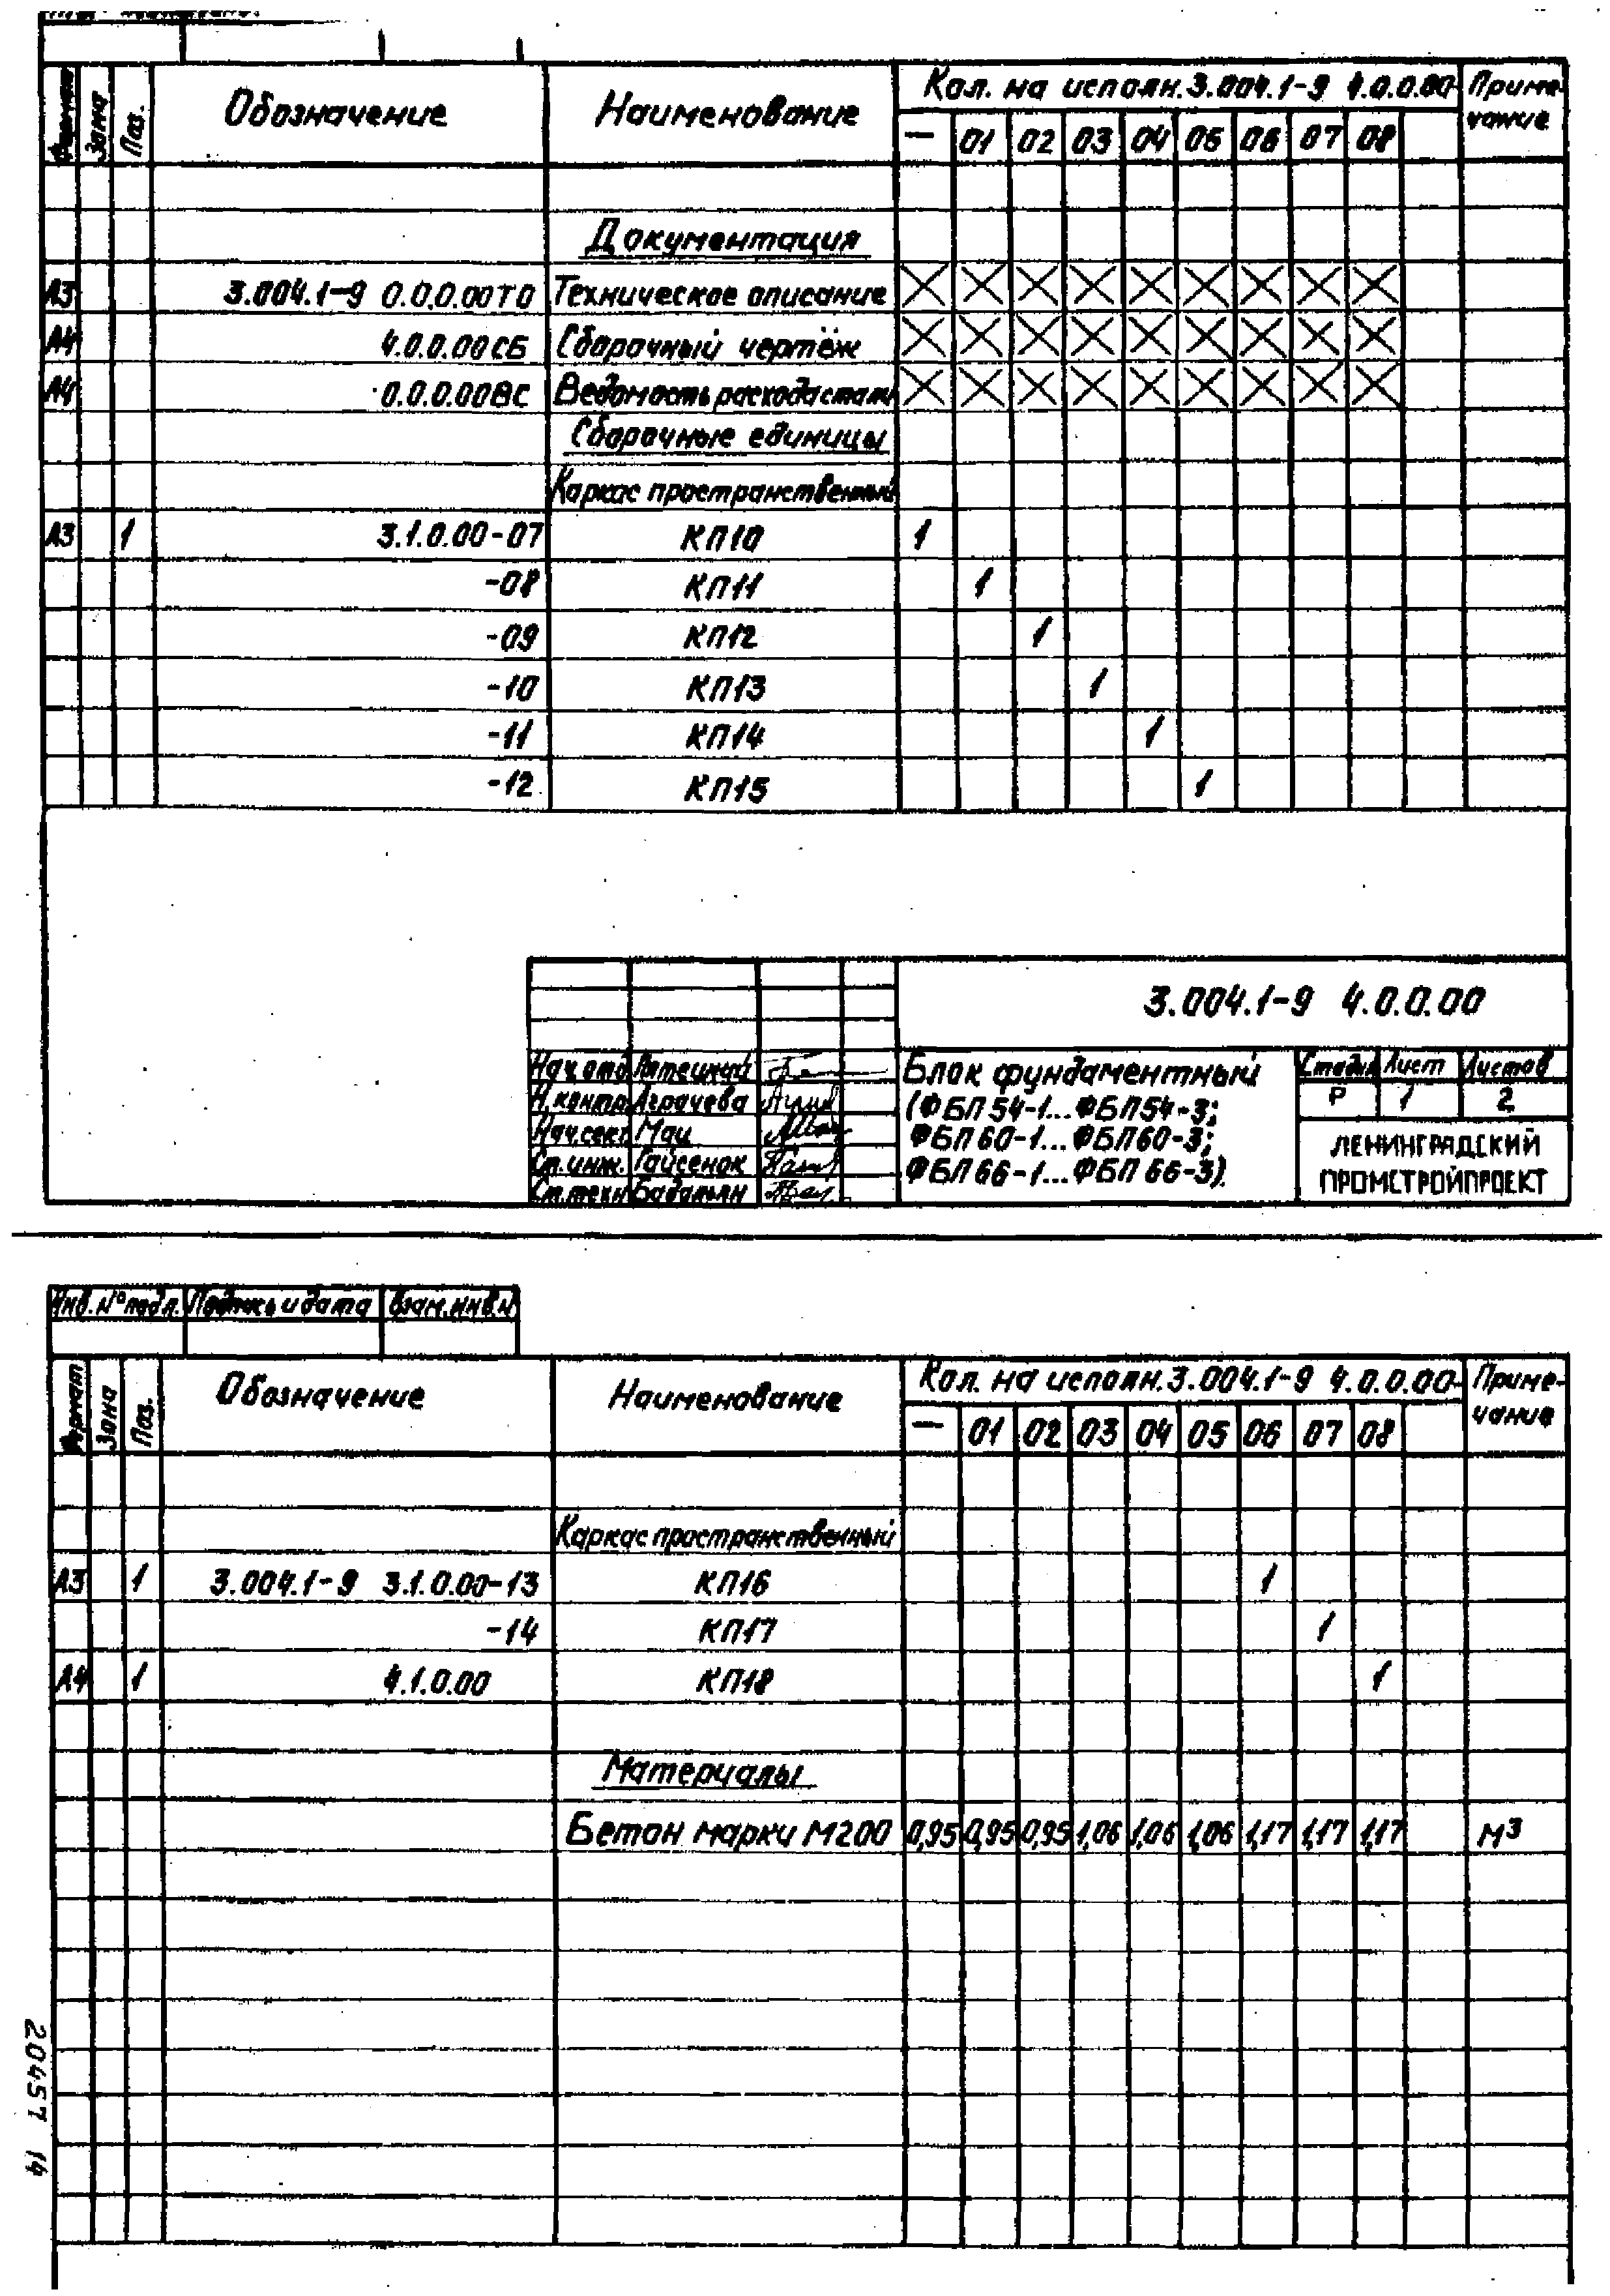 Формат Зона Поз. Обозначение Наименование Кол. на исполн. 3.004.1-9 4.0.0.00- Приме-
чание
— 01 02 03 04 05 06 07 08
Документация
А3 3.004.1-9 0.0.0.00ТО Техническое описание X X X X X X X X X
А4 4.0.0.00СБ Сборочный чертёж X X X X X X X X X
А4 0.0.0.00ВС Ведомость расхода стали X X X X X X X X X
Сборочные единицы
Каркас пространственный
А3 1 3.1.0.00-07 КП10 1
-08 КП11 1
-09 КП12 1
-10 КП13 1
-11 КП14 1
-12 КП15 1
3.004.1-9 4.0.0.00
Нач. отд.
Н.контр. Аграчева
Нач.сект. Мац
Ст.инж. Гайсенок
Ст.техн. Бадальян
Блок фундаментный
(ФБП54-1...ФБП54-3;
ФБП60-1...ФБП60-3;
ФБП66-1...ФБП66-3).
Стадия Лист Листов
Р 1 2
ЛЕНИНГРАДСКИЙ
ПРОМСТРОЙПРОЕКТ
Инв. № подл. Подпись и дата Взам. инв. №
Формат Зона Поз. Обозначение Наименование Кол. на исполн. 3.004.1-9 4.0.0.00- Приме-
чание
— 01 02 03 04 05 06 07 08
Каркас пространственный
А3 1 3.004.1-9 3.1.0.00-13 КП16 1
-14 КП17 1
А4 1 4.1.0.00 КП18 1
Материалы
Бетон марки М200 0,95 0,95 0,95 1,06 1,06 1,06 1,17 1,17 1,17 М³
20457 14